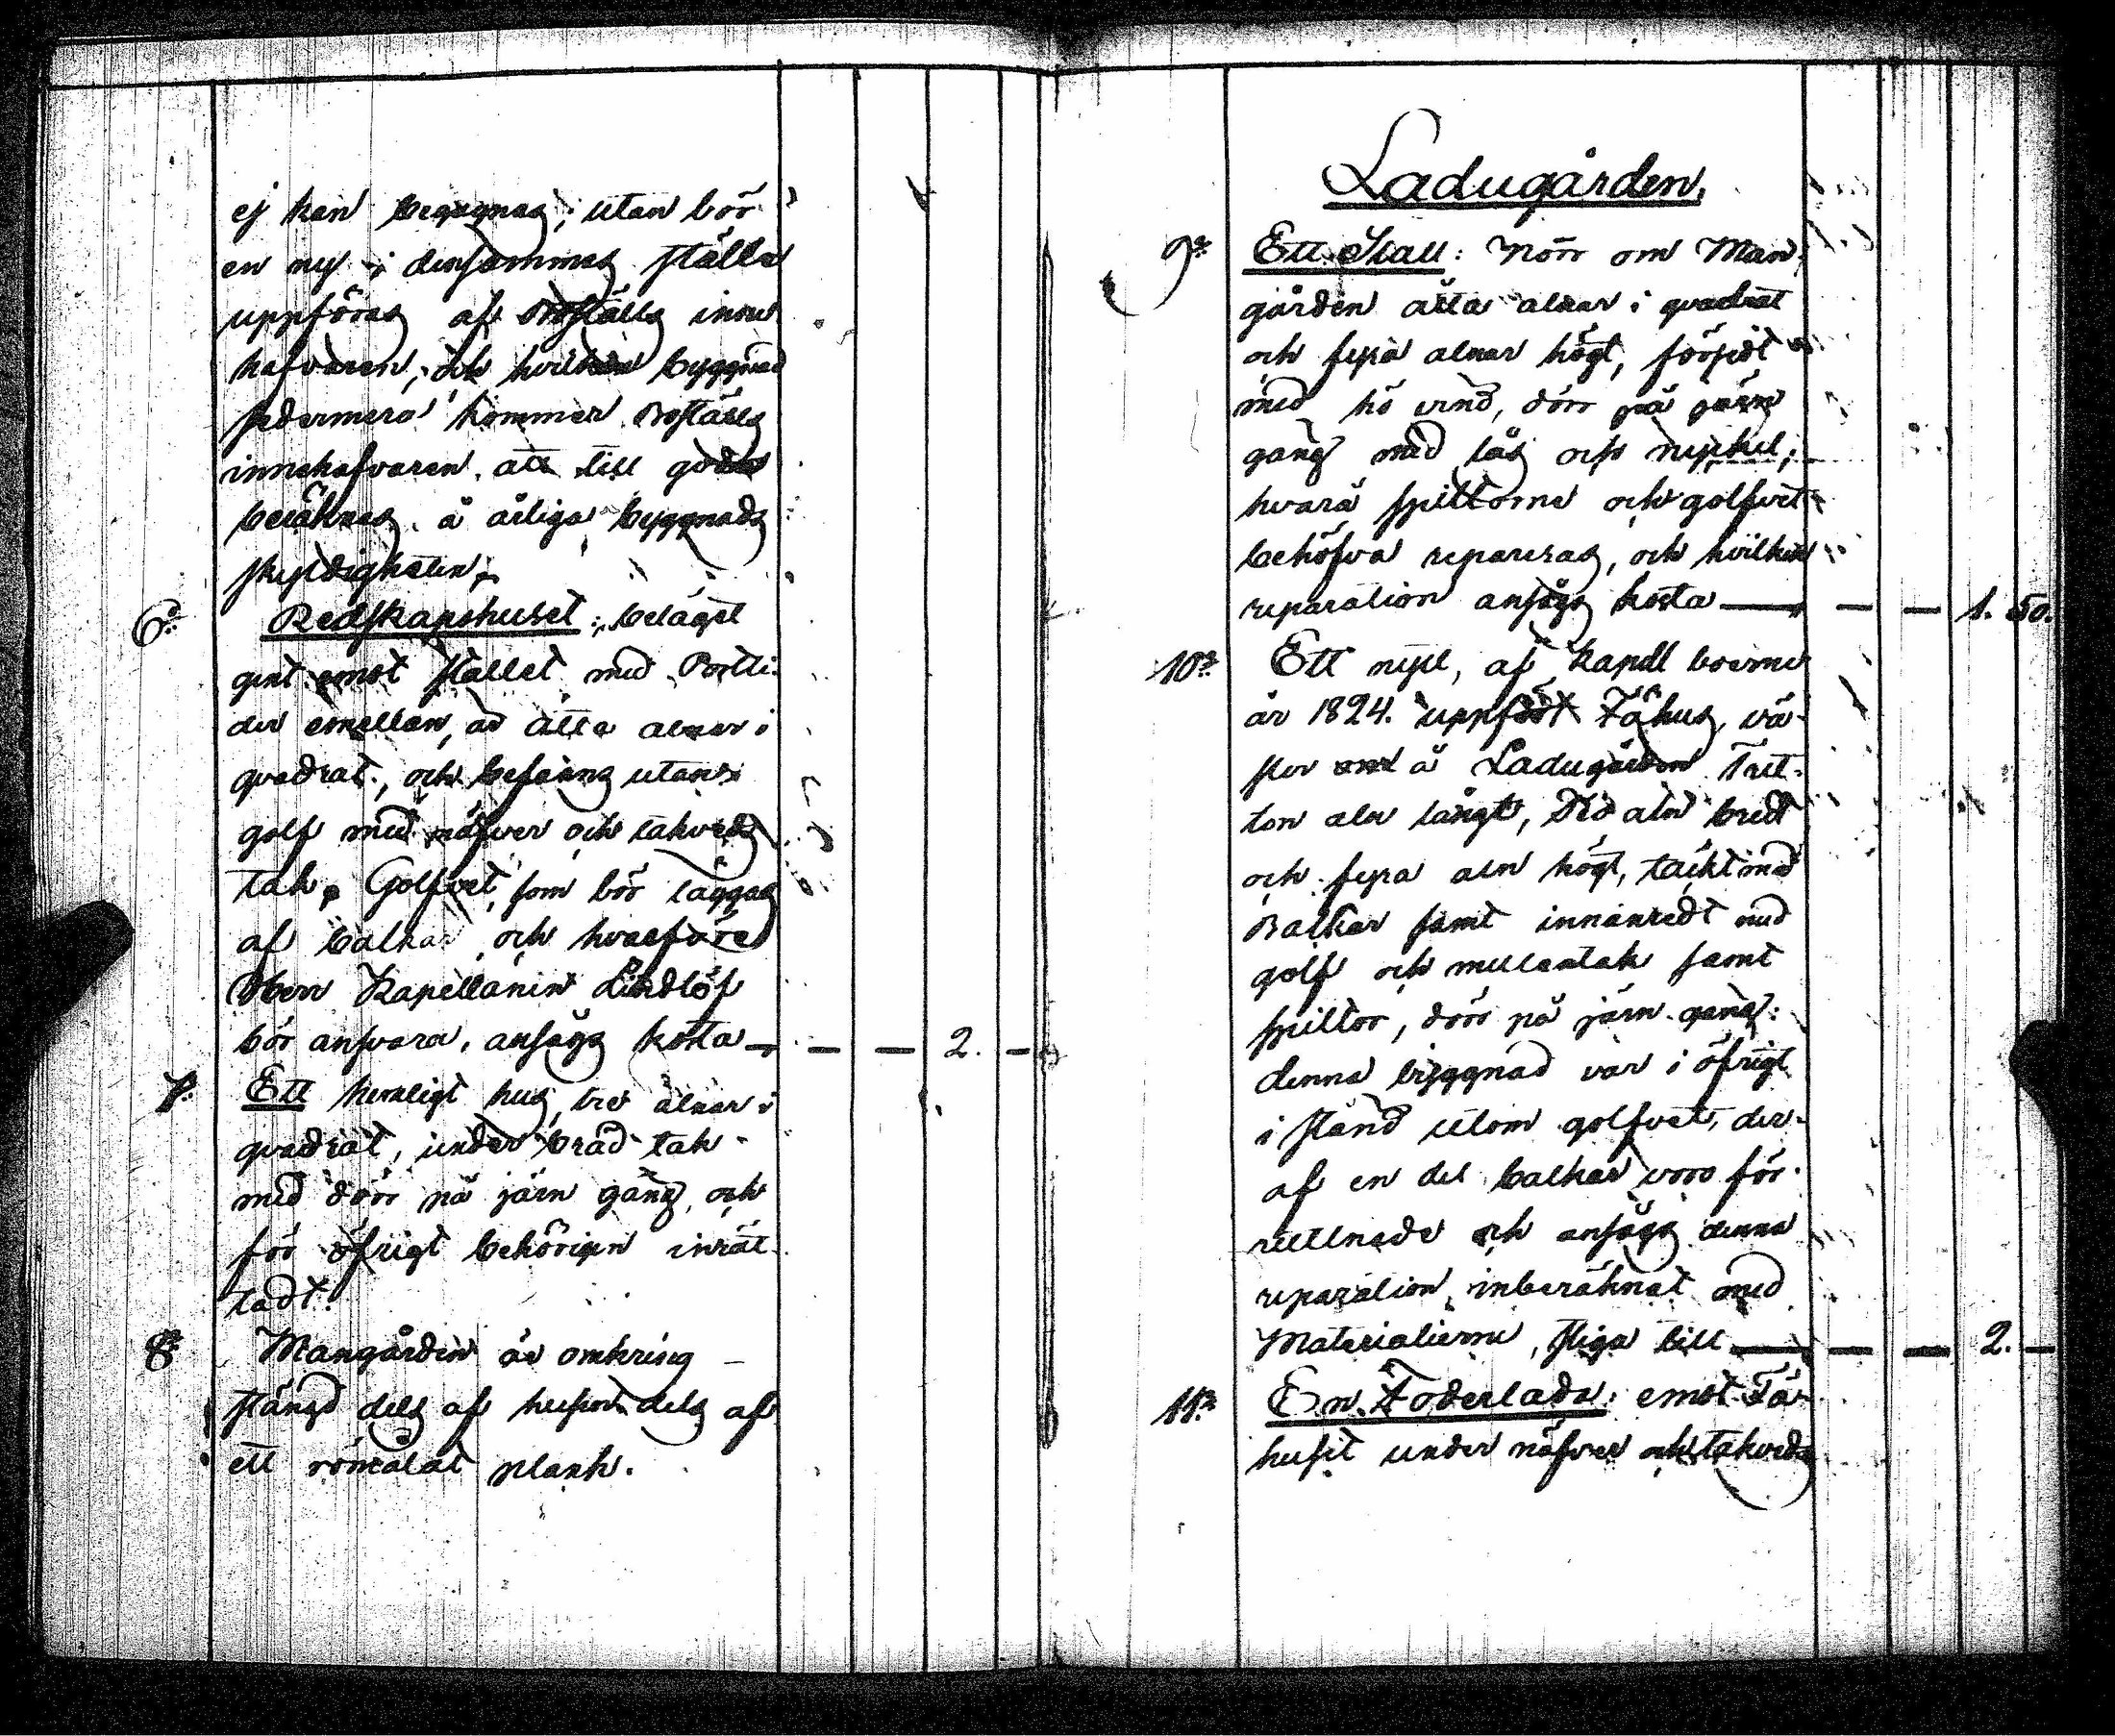 ej kan begagnas, utan bör
en ny i densammas ställe
uppföras af Boställs inne
hafvaren; och hvilken byggnad
sedermera kommer Boställs
innehafvaren att till godo
beräknas å årliga byggnads
skyldigheten.
6:o Redskapshuset: beläget
gent emot stallet med Portli-
der emellan, åtta alnar i
qvadrat, och befanns utan
golf med näfver och takveds
tak. Golfvet, som bör läggas
af balkar och hvarföre
Herr Kapellanen Lindlöf
bör ansvara, ansågs kosta — — — 2. —
7. Ett hemligt hus, tre alnar i
qvadrat, under bräd tak
med dörr på järn gång, och
för öfrigt behörigen inrät-
tadt.
8:o Mangården är omkring
stängd dels af husen dels af
ett rödmålat plank.
Ladugården.
9:o Ett Stall: Norr om Man-
gården åtta alnar i qvadrat
och fyra alnar högt, försedt
med hö vind, dörr på järn
gång med lås och nyckel;
hvara spiltorne och golfvet
behöfva repareras, och hvilken
reparation ansågs kosta — — — 1. 50.
10:o Ett nytt, af Kapell boerne
år 1824. uppfört Fähus, vä-
ster om å Ladugården Tret-
ton aln långt, Tio aln bredt
och fyra aln högt, täckt med
Balkar samt innanredt med
golf och mullantak samt
spiltor, dörr på järn gång:
denna byggnad var i öfrigt
i stånd utom golfvet, der-
af en del balkar voro för-
ruttnade och ansågs denna
reparation, inberäknat med
Materialierne, stiga till — — — 2. —
11:o En Foderlada: emot Fä-
huset under näfver och takveds